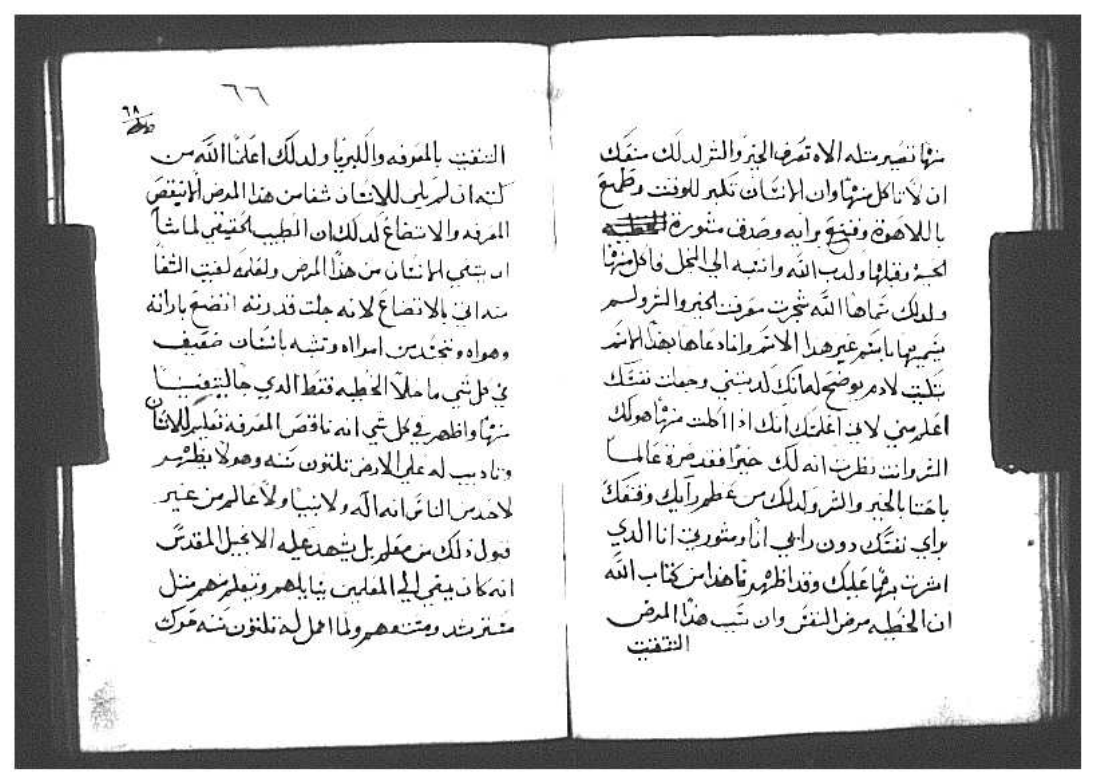 منها تصير مثله الاه تعرف الخير والشر لدلك منعك
ان لا تاكل منها وان الانسان تكبر للوقت وطمع
باللاهوة وقنع برايه وصدق مشورة الخطيه
الحيه وقبلها ولدب الله وانتبه الي النحل فاكل منها
ولدلك سماها الله شجرت معرفت الخير والشر ولم
يسميها باسم غير هدا الاسم وانما دعاها بهدا الاسم
ليثبت لادم بوضح لمانك لدبتني وجعلت نفسك
اعلم مني لاني اعلمتك انك ادا اكلت منها هولك
الشر وانت نظرت انه لك خيرا فقد صرة عالما
باحتنا بالخير والشر ولدلك من عظم رايك وقنعك
براي نفسك دون رايي انا ومشورتي انا الدي
اشرت بها عليك وقد اظهر لنا هدا من كتاب الله
ان الخطيه مرض النفس وان سبب هدا المرض
التتقيت
٦٦
٦٨
التتقيت بالمعرفه والكبريا ولدلك اعلمنا الله من
كتبه ان لم يكن للانسان شفا من هدا المرض الا بنقص
المعرفه والاتضاع لدلك ان الطبيب الحقيقي لما شا
ان يشفي الانسان من هدا المرض ولعلمه كيف الشفا
منه اتي بالاتضاع لانه جلت قدرته اتضع بارادته
وهواه وتجسد من امراه وتشبه بانسان ضعيف
في كل شي ما خلا الخطيه فقط الدي جا ليشفينا
منها واظهر في كل شي انه ناقص المعرفه تعليم للانسان
وتاديب له علي الارض تلتون سنه وهو لا يظهر
لاحد من الناس انه اله ولا نبيا ولا عالم من غير
قبول دلك من معلم بل يشهد عليه الانجيل المقدس
انه كان يمضي الي المعلمين يسايلهم ويتعلم منهم مثل
مسترشد ومستمع منهم ولما اكمل له تلتون سنه تحرك